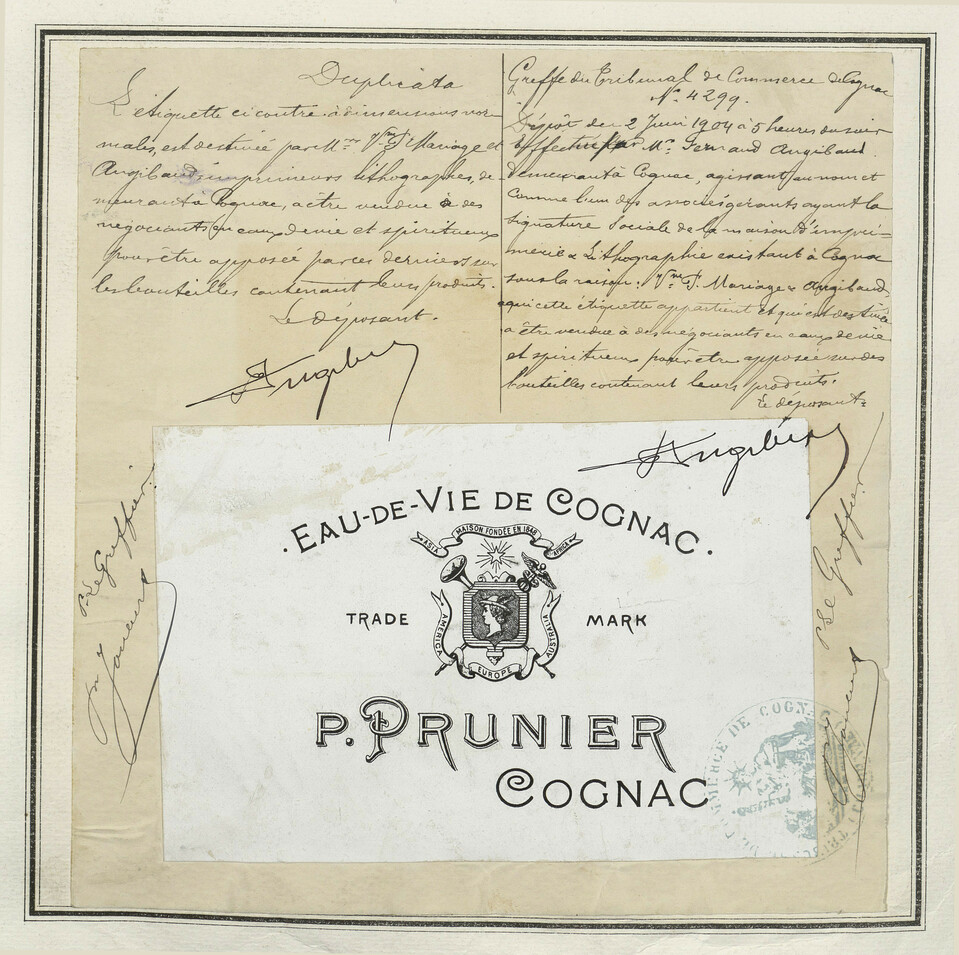 Duplicata
L'étiquette ci contre, à dimensions nor-
males, est destinée par M.rs Vve & Fs Mariage et
Angibaud, imprimeurs lithographes, de-
meurant à Cognac, à être vendue à des
négociants en eaux de vie et spiritueux
pour être apposée par ces derniers sur
les bouteilles contenant leurs produits.
Le déposant.
Angibaud
Greffe du Tribunal de Commerce de Cognac
N.o 4299.
Dépôt du 2 Juin 1904 à 5 heures du soir
Effectué par Mr. Fernand Angibaud
demeurant à Cognac, agissant au nom et
comme l'un des associés gérants ayant la
signature sociale de la maison d'impri-
merie & Lithographie existant à Cognac
sous la raison: Vve & Fs Mariage & Angibaud,
à qui cette étiquette appartient et qui est destinée
à être vendue à des négociants en eaux de vie
et spiritueux pour être apposée sur des
bouteilles contenant leurs produits.
Le déposant
Angibaud
P. Le Greffier.
P. Le Greffier
.EAU-DE-VIE DE COGNAC.
MAISON FONDÉE EN 1848
ASIA AFRICA
TRADE MARK
AMERICA AUSTRALIA
EUROPE
P. PRUNIER
COGNAC
COMMERCE DE COGNAC